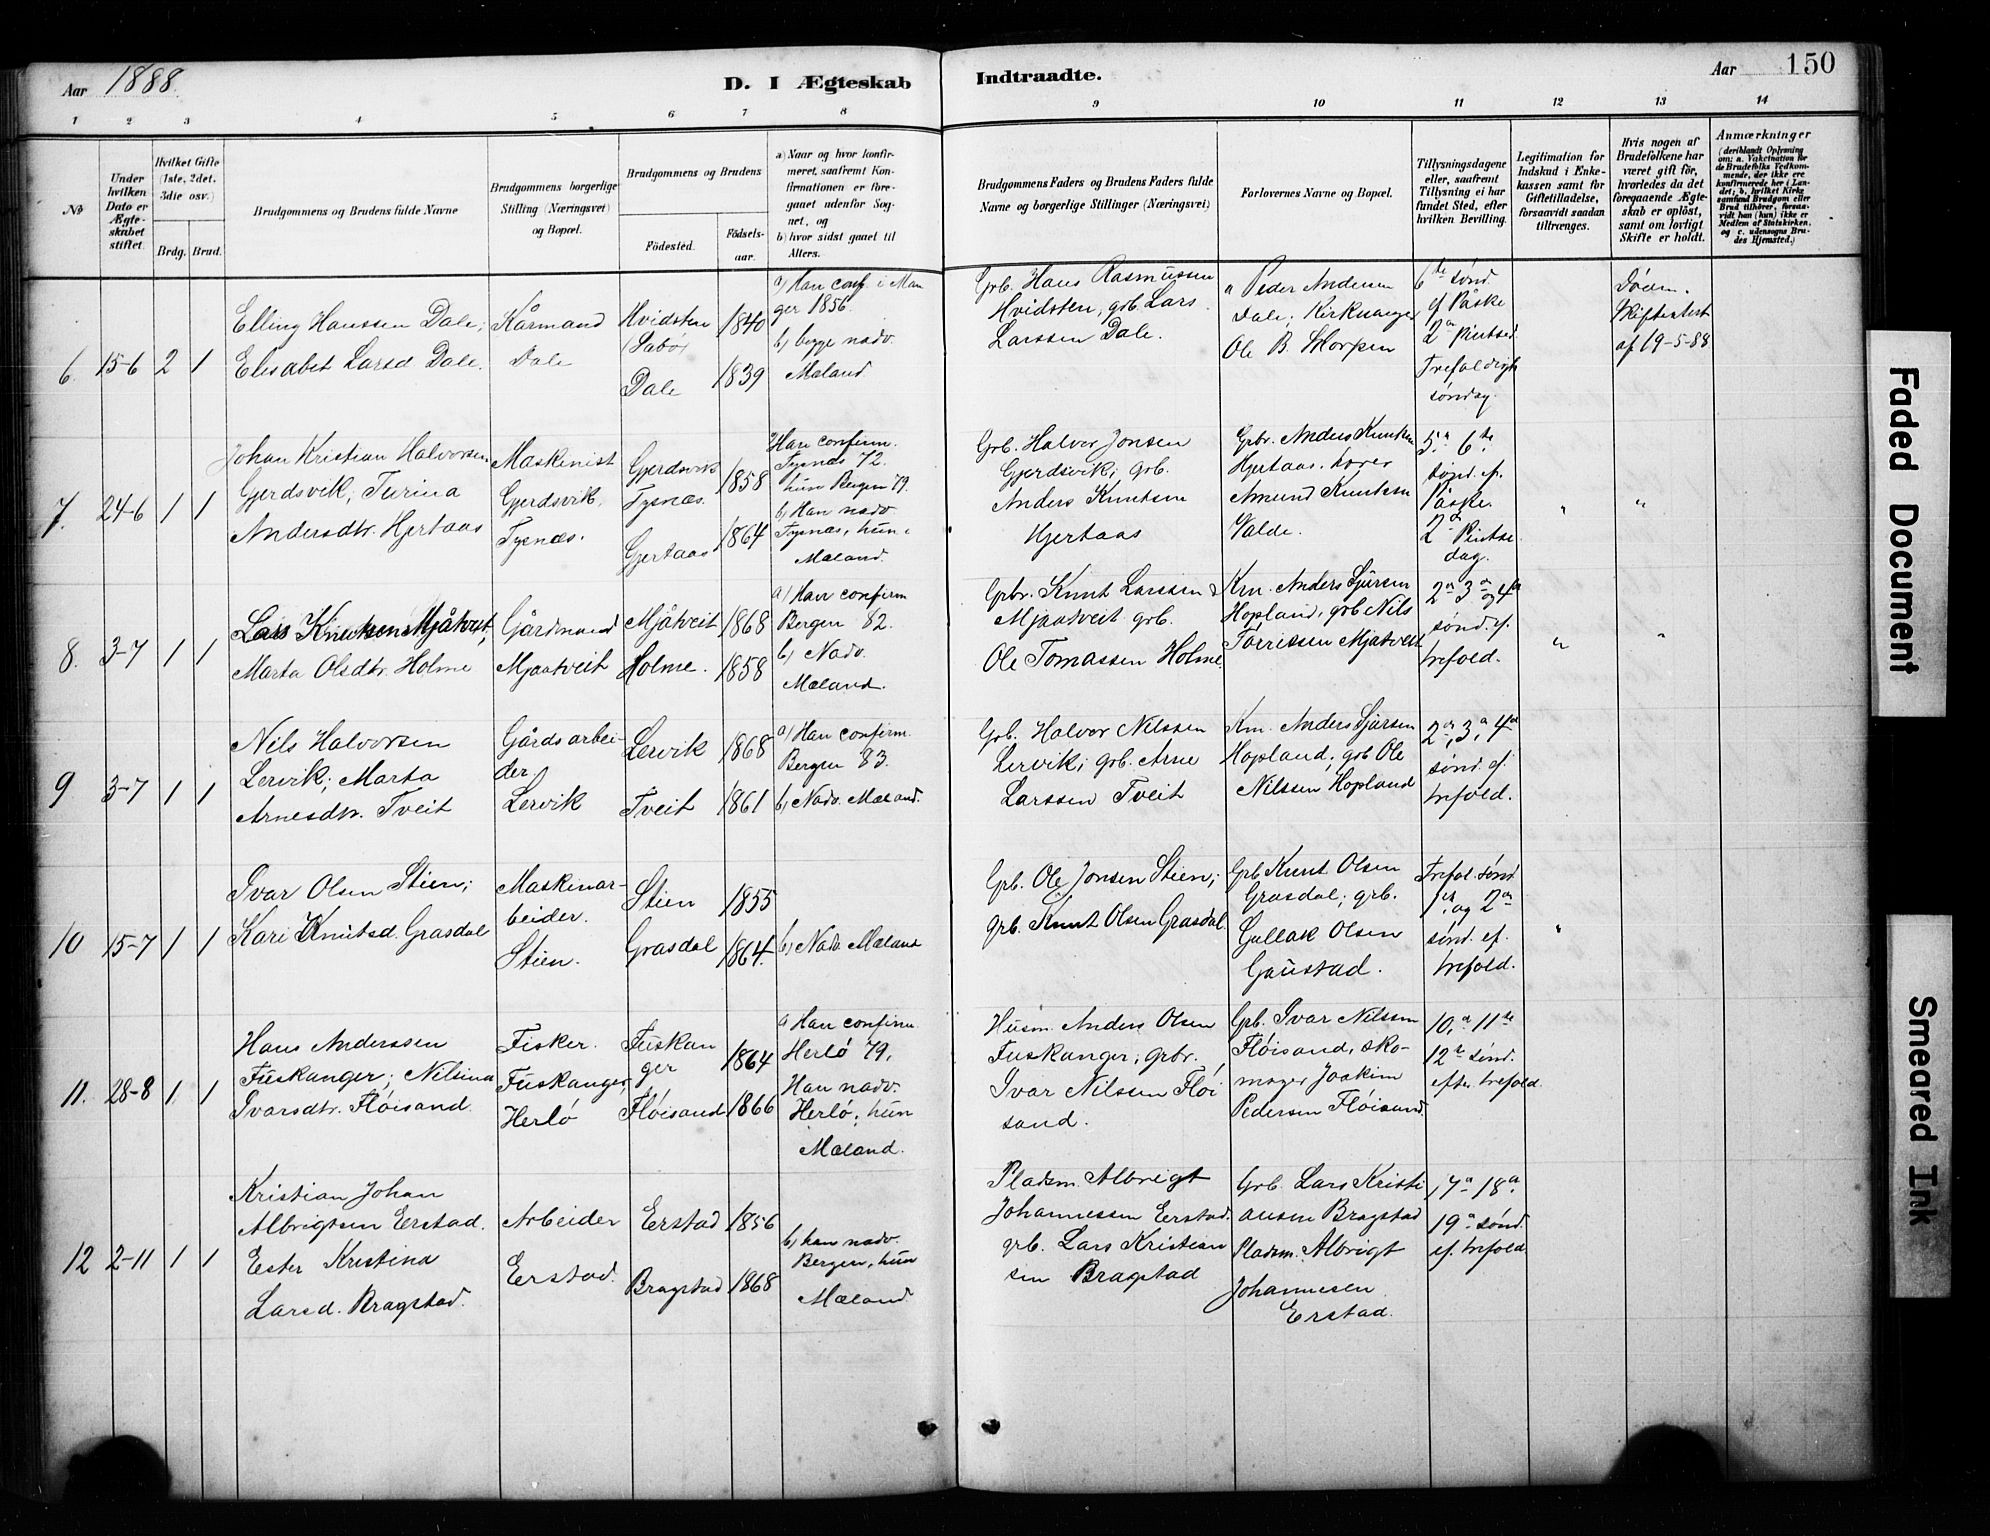 Aar 1888.
D. I Ægteskab
Indtraadte.
Aar 150
1 2 3 4 5 6 7 8 9 10 11 12 13 14
No
Under hvilken Dato er Ægteskabet stiftet.
Hvilket Gifte (1ste, 2det, 3die osv.)
Brdg. Brud.
Brudgommens og Brudens fulde Navne
Brudgommens borgerlige Stilling (Næringsvei) og Bopæl.
Brudgommens og Brudens
Födested.
Födselsaar.
a) Naar og hvor konfirmeret, saafremt Konfirmationen er foregaaet udenfor Sognet, og
b) hvor sidst gaaet til Alters.
Brudgommens Faders og Brudens Faders fulde Navne og borgerlige Stillinger (Næringsvei)
Forlovernes Navne og Bopæl.
Tillysningsdagene eller, saafremt Tillysning ei har fundet Sted, efter hvilken Bevilling.
Legitimation for Indskud i Enkekassen samt for Giftetilladelse, forsaavidt saadan tiltrænges.
Hvis nogen af Brudefolkene har været gift før, hvorledes da det foregaaende Ægteskab er oplöst, samt om lovligt Skifte er holdt.
Anmærkninger (deriblandt Oplysning om: a. Vakcination for de Brudefolks Vedkommende, der ikke ere konfirmerede her i Landet; b. hvilket Kirkesamfund Brudgom eller Brud tilhörer, forsaavidt han (hun) ikke er Medlem af Statskirken, og c. udensogns Brudes Hjemsted.)
6. 15-6 2 1
Elling Hanssen Dale;
Elisabet Larsd Dale.
Kårmand
Dale
Hvidsten
(Sæbø)
Dale
1840
1839
a) Han conf. i Man
ger 1856.
b) begge nadv.
Mæland.
Grb. Hans Rasmussen
Hvidsten, grb. Lars
Larssen Dale.
Peder Andersen
Dale; Kirkesanger
Ole B. Skorpen
6te sønd
ef Påske
2a Pintsed
Trefoldigh
søndag.
Skifteattest
af 19-5-88
7. 24-6 1 1
Johan Kristian Halvorsen
Gjerdsvik; Turina
Andersdtr. Hjertaas
Maskinist
Gjerdsvik,
Tysnæs.
Gjerdsvik
Tysnæs.
Gjertaas
1858
1864
Han confirm.
Tysnæs 72.
hun Bergen 79.
b) Han nadv.
Tysnæs, hun
Mæland.
Grb. Halvor Jonsen
Gjerdsvik; grb.
Anders Knutsen
Hjertaas
Grbr. Anders Knutsen
Hjertaas,
Amund Knutsen
Valde.
5a 6te
sønd. ef.
Påske.
2a Pintse
dag.
"
"
8. 3-7 1 1
Lars Knutsen Mjåtveit,
Marta Olsdtr. Holme
Gårdmand
Mjaatveit
Mjåtveit
Holme.
1868
1858
a) Han confirm
Bergen 82.
b) Nadv.
Mæland.
Grbr. Knut Larssen
Mjaatveit grb.
Ole Tomassen Holme.
Km. Anders Sjursen
Hopland, grb Nils
Torrissen Mjatveit
2a 3a og 4a
sønd. ef.
trefold.
"
"
9 3-7 1 1
Nils Halvorsen
Lervik; Marta
Arnesdtr. Tveit
Gårdsarbei-
der.
Lervik
Lervik
Tveit
1868
1861
a) Han confirm.
Bergen 83.
b) Nadv. Mæland.
Grb. Halvor Nilssen
Lervik; grb. Arne
Larssen Tveit
Km. Anders Sjursen
Hopland; grb Ole
Nilssen Hopland
2a, 3a, 4a
sønd. ef.
trefold.
10 15-7 1 1
Ivar Olsen Stien;
Kari Knutsd. Grasdal
Maskinar-
beider.
Stien.
Stien
Grasdal
1855
1864.
b) Nadv Mæland
Grb. Ole Jonsen Stien;
grb. Knut Olsen Grasdal
Grb Knut Olsen
Grasdal; grb.
Gullak Olsen
Gaustad.
Trefol. sønd
og 2a
sønd. ef.
trefold.
"
11. 28-8 1 1
Hans Anderssen
Fuskanger; Nilsina
Ivarsdtr. Fløisand.
Fisker.
Fuskanger,
Herlö
Fuskan
ger
Fløisand
1864
1866
a Han confirm
Herlö 79,
Han nadv.
Herlö; hun
Mæland.
Husm. Anders Olsen
Fuskanger; grbr.
Ivar Nilssen Fløi
sand.
Grb. Ivar Nilssen
Fløisand, sko-
mager Joakim
Pedersen Fløisand.
10.a 11te
12te sønd.
efter trefold.
12 2-11 1 1
Kristian Johan
Albrigtsen Erstad.
Ester Kristina
Larsd. Bragstad.
Arbeider
Erstad.
Erstad
Bragstad
1856
1868
b) han nadv.
Bergen, hun
Mæland
Pladsm Albrigt
Johannessen Erstad.
grb. Lars Kristian
sen Bragstad
Grb. Lars Kristi
ansen Bragstad
Pladsm. Albrigt
Johannesen
Erstad.
17a 18a.
19a sønd.
ef. trefold
Faded Document
Smeared Ink